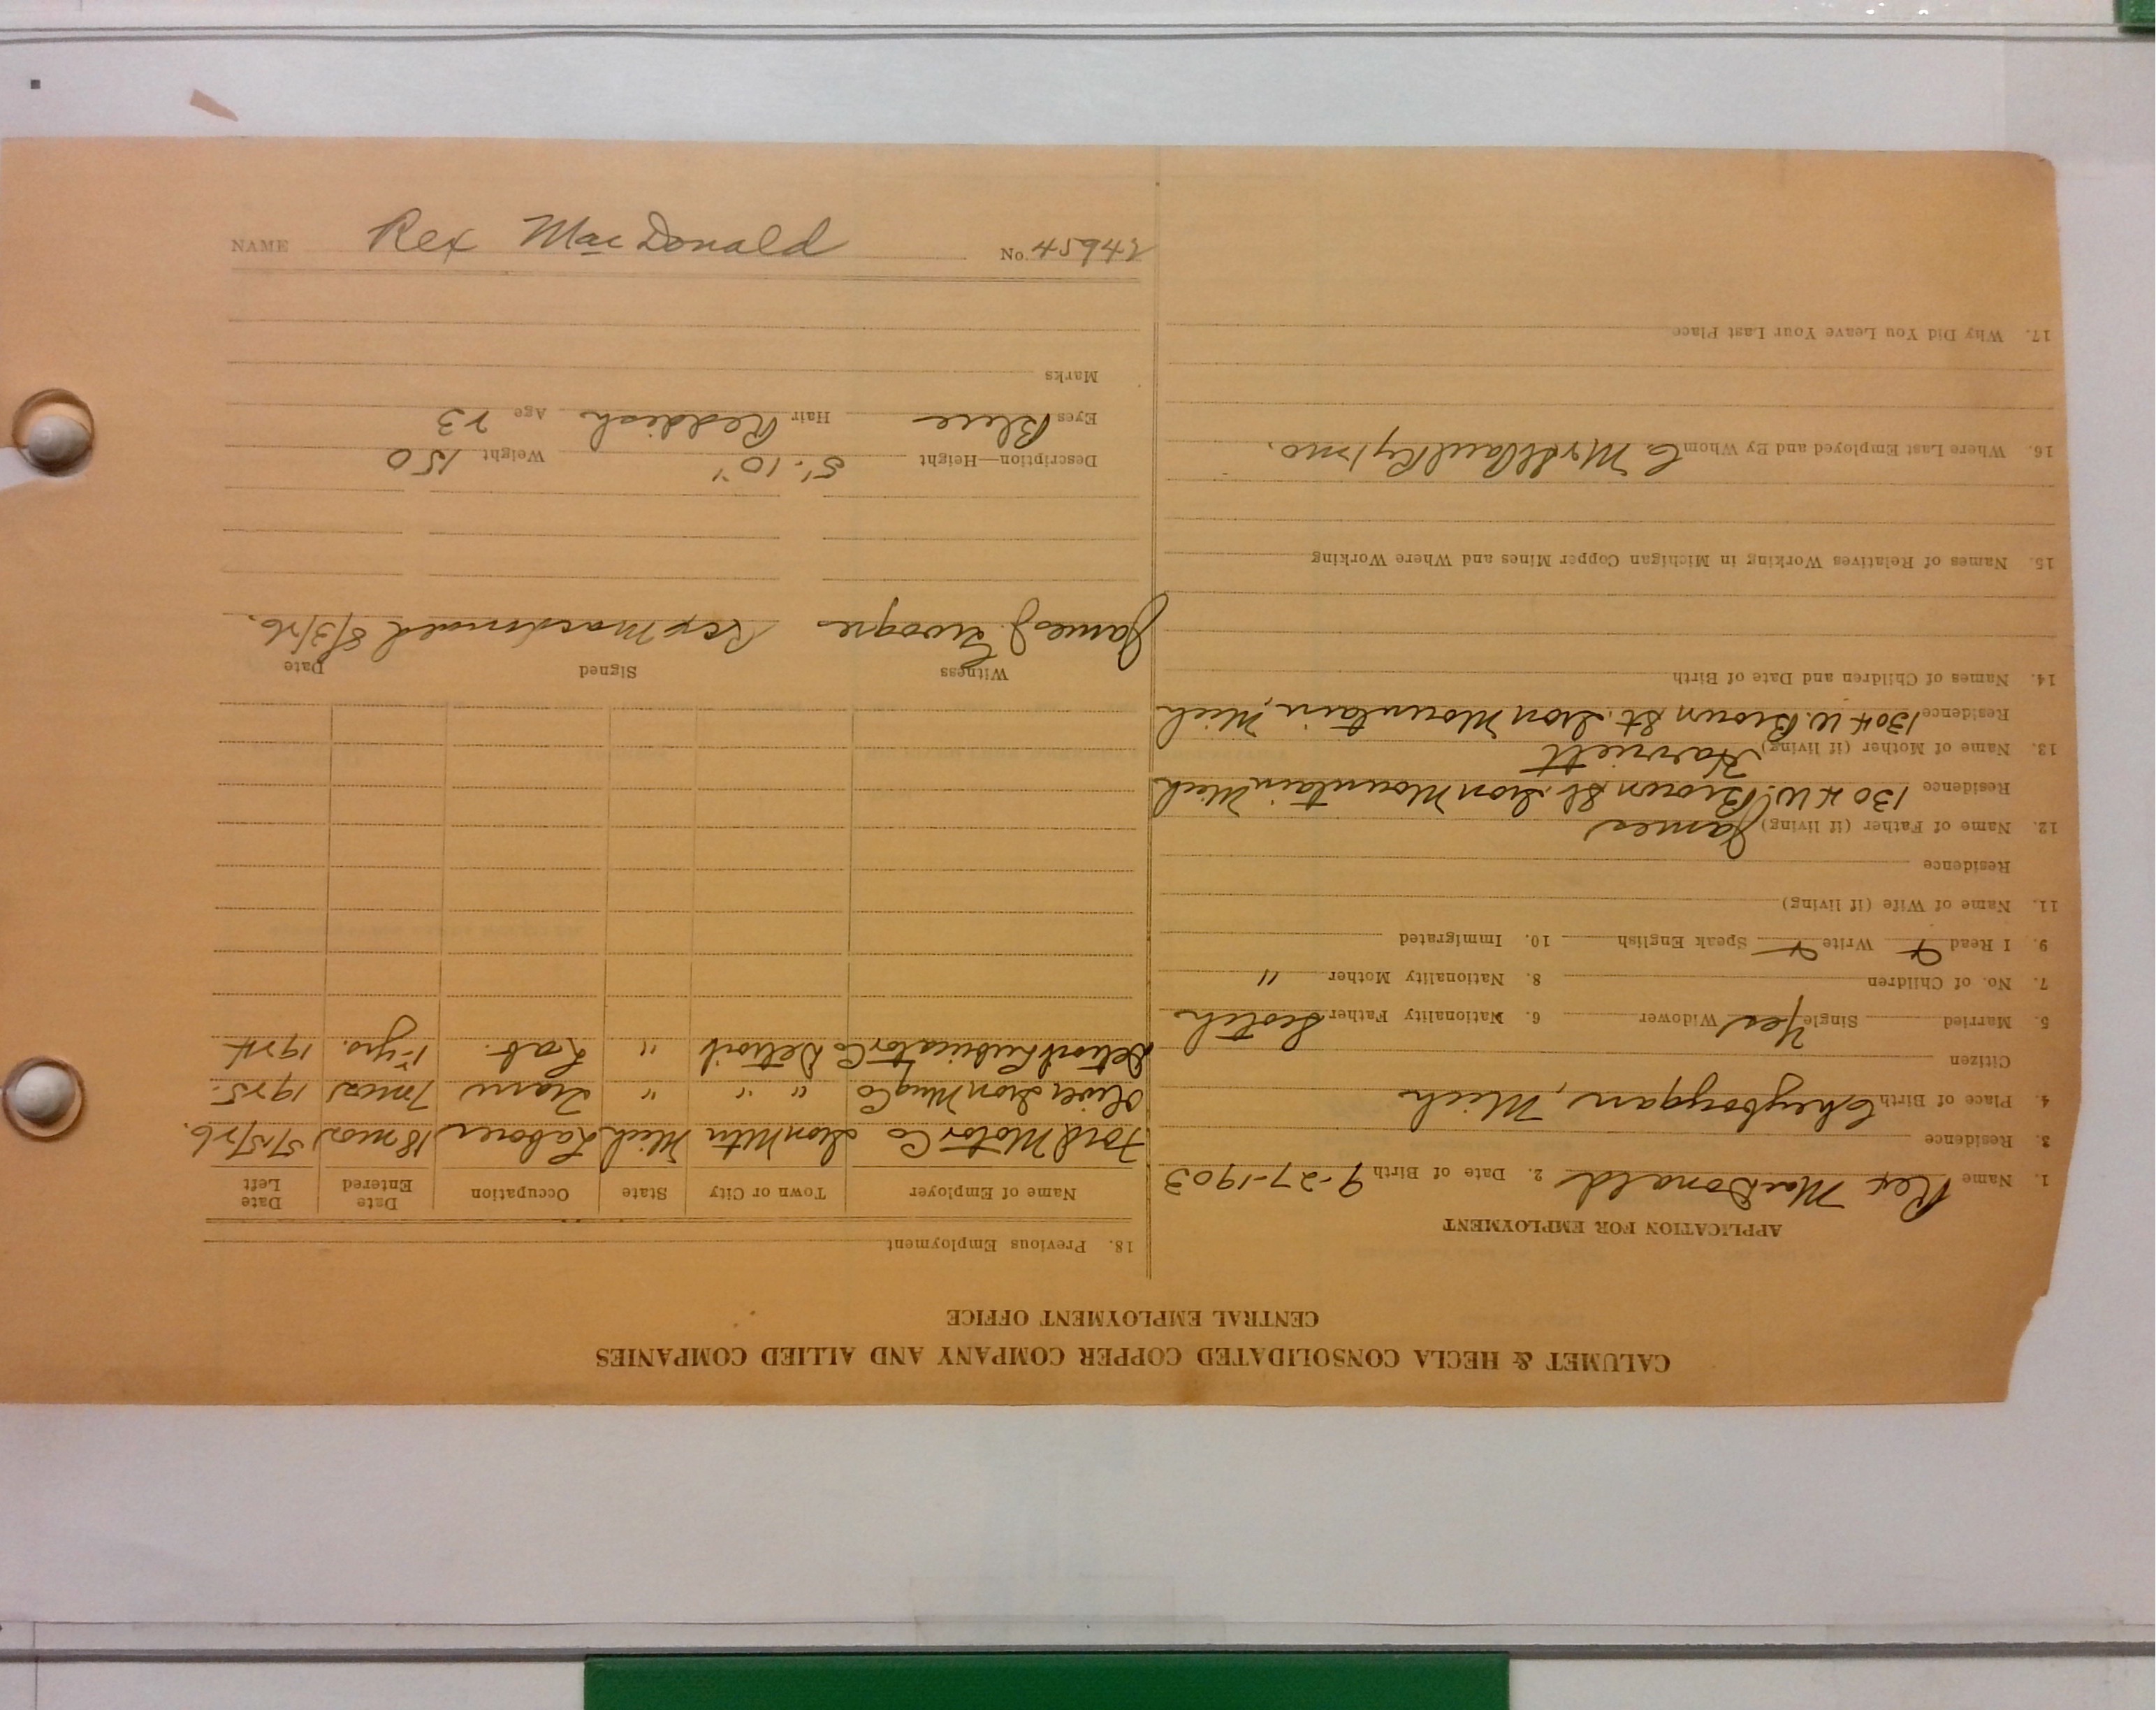 CALUMET & HECLA CONSOLIDATED COPPER COMPANY AND ALLIED COMPANIES
CENTRAL EMPLOYMENT OFFICE
APPLICATION FOR EMPLOYMENT
1. Name Rex MacDonald 2. Date of Birth 9-27-1903
3. Residence
4. Place of Birth Cheyboygan, Mich
Citizen
5. Married Single Yes Widower 6. Nationality Father Scotch
7. No. of Children 8. Nationality Mother "
9. I Read Write Speak English 10. Immigrated
11. Name of Wife (if living)
Residence
12. Name of Father (if living) James
Residence 1304 W. Brown St. Iron Mountain Mich
13. Name of Mother (if living) Harriett
Residence 1304 W. Brown St. Iron Mountain, Mich
14. Names of Children and Date of Birth
15. Names of Relatives Working in Michigan Copper Mines and Where Working
16. Where Last Employed and By Whom C. M. & St Paul Ry 1 mo.
17. Why Did You Leave Your Last Place
18. Previous Employment
Name of Employer Town or City State Occupation Date Entered Date Left
Ford Motor Co Iron Mtn Mich Laborer 18 mos 5/15/26.
Oliver Iron Mng Co " " " Tram 7 mos 1925.
Detroit Lubricator Co Detroit " Lab. 1-yrs. 1924
Witness Signed Date
James J. Rex MacDonald 8/3/26.
Description—Height 5'.10" Weight 150
Eyes Blue Hair Reddish Age 23
Marks
NAME Rex MacDonald No. 45942